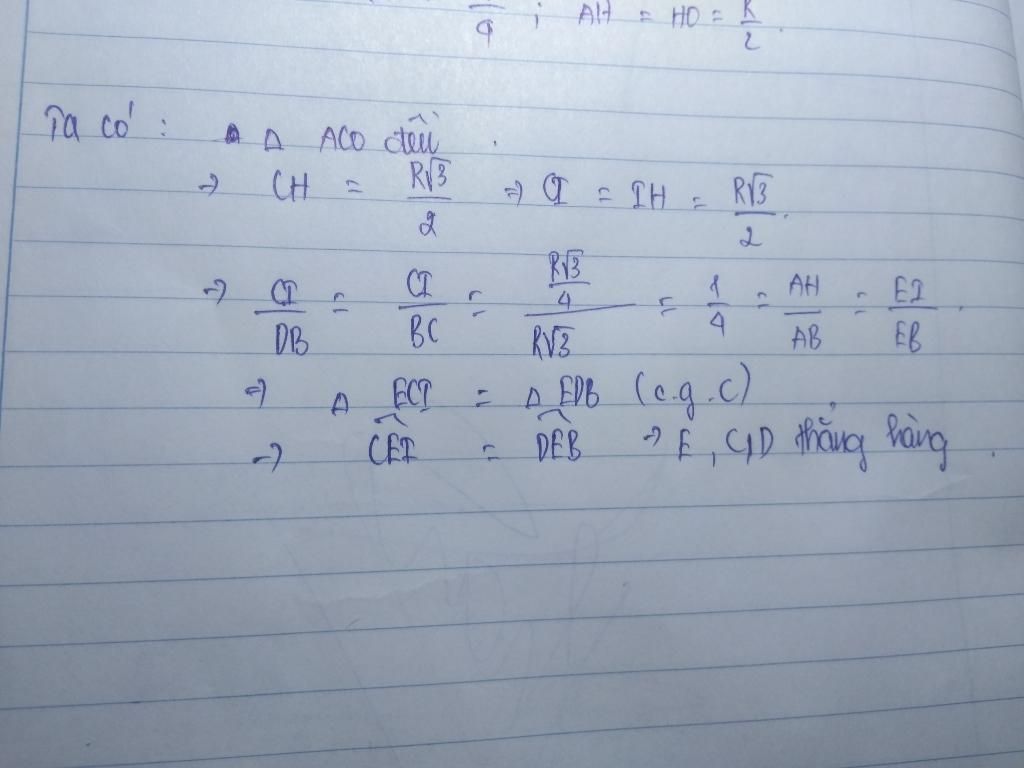 /4 ; AH = HO = R/2.
Ta có : Δ ACO đều .
→ CH = R√3/2 → CI = IH = R√3/2.
→ CI/DB = CI/BC = (R√3/4)/(R√3) = 1/4 = AH/AB = EI/EB .
→ Δ ECI = Δ EDB (c.g.c)
→ CEI^ = DEB^ → E, C, D thẳng hàng .